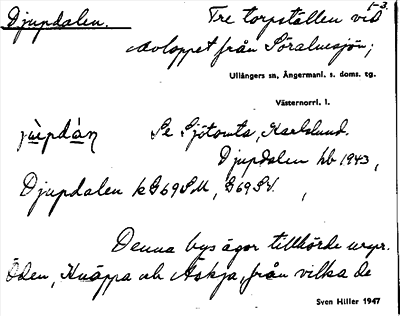 Djupdalen. Tre torpställen vid 1-3.
avloppet från Söralnesjön;
Ullångers sn, Ångermanl. s. doms. tg.
Västernorrl. l.
jùpdàn Se Sjötonta, Karlslund.
Djupdalen hb 1943,
Djupdalen k G69SM, G69SV. ,
Denna bys ägor tillhörde urspr.
Öden, Knäppa och Askja, från vilka de
Sven Hiller 1947